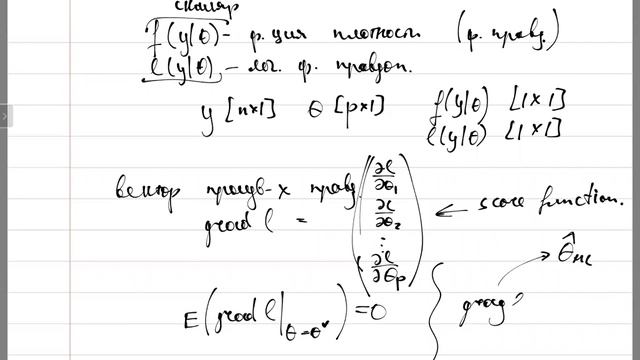 скаляр
f(y|θ) - ф. ция плотности (ф. правд.)
ℓ(y|θ) - лог. ф. правдоп.
y [n×1] θ [p×1] f(y|θ) [1×1]
ℓ(y|θ) [1×1]
вектор правд.
grad ℓ = (∂ℓ/∂θ₁ ∂ℓ/∂θ₂ ⋮ ∂ℓ/∂θp) ← score function.
θ̂ML
E(grad ℓ|θ=θ*) = 0
grad